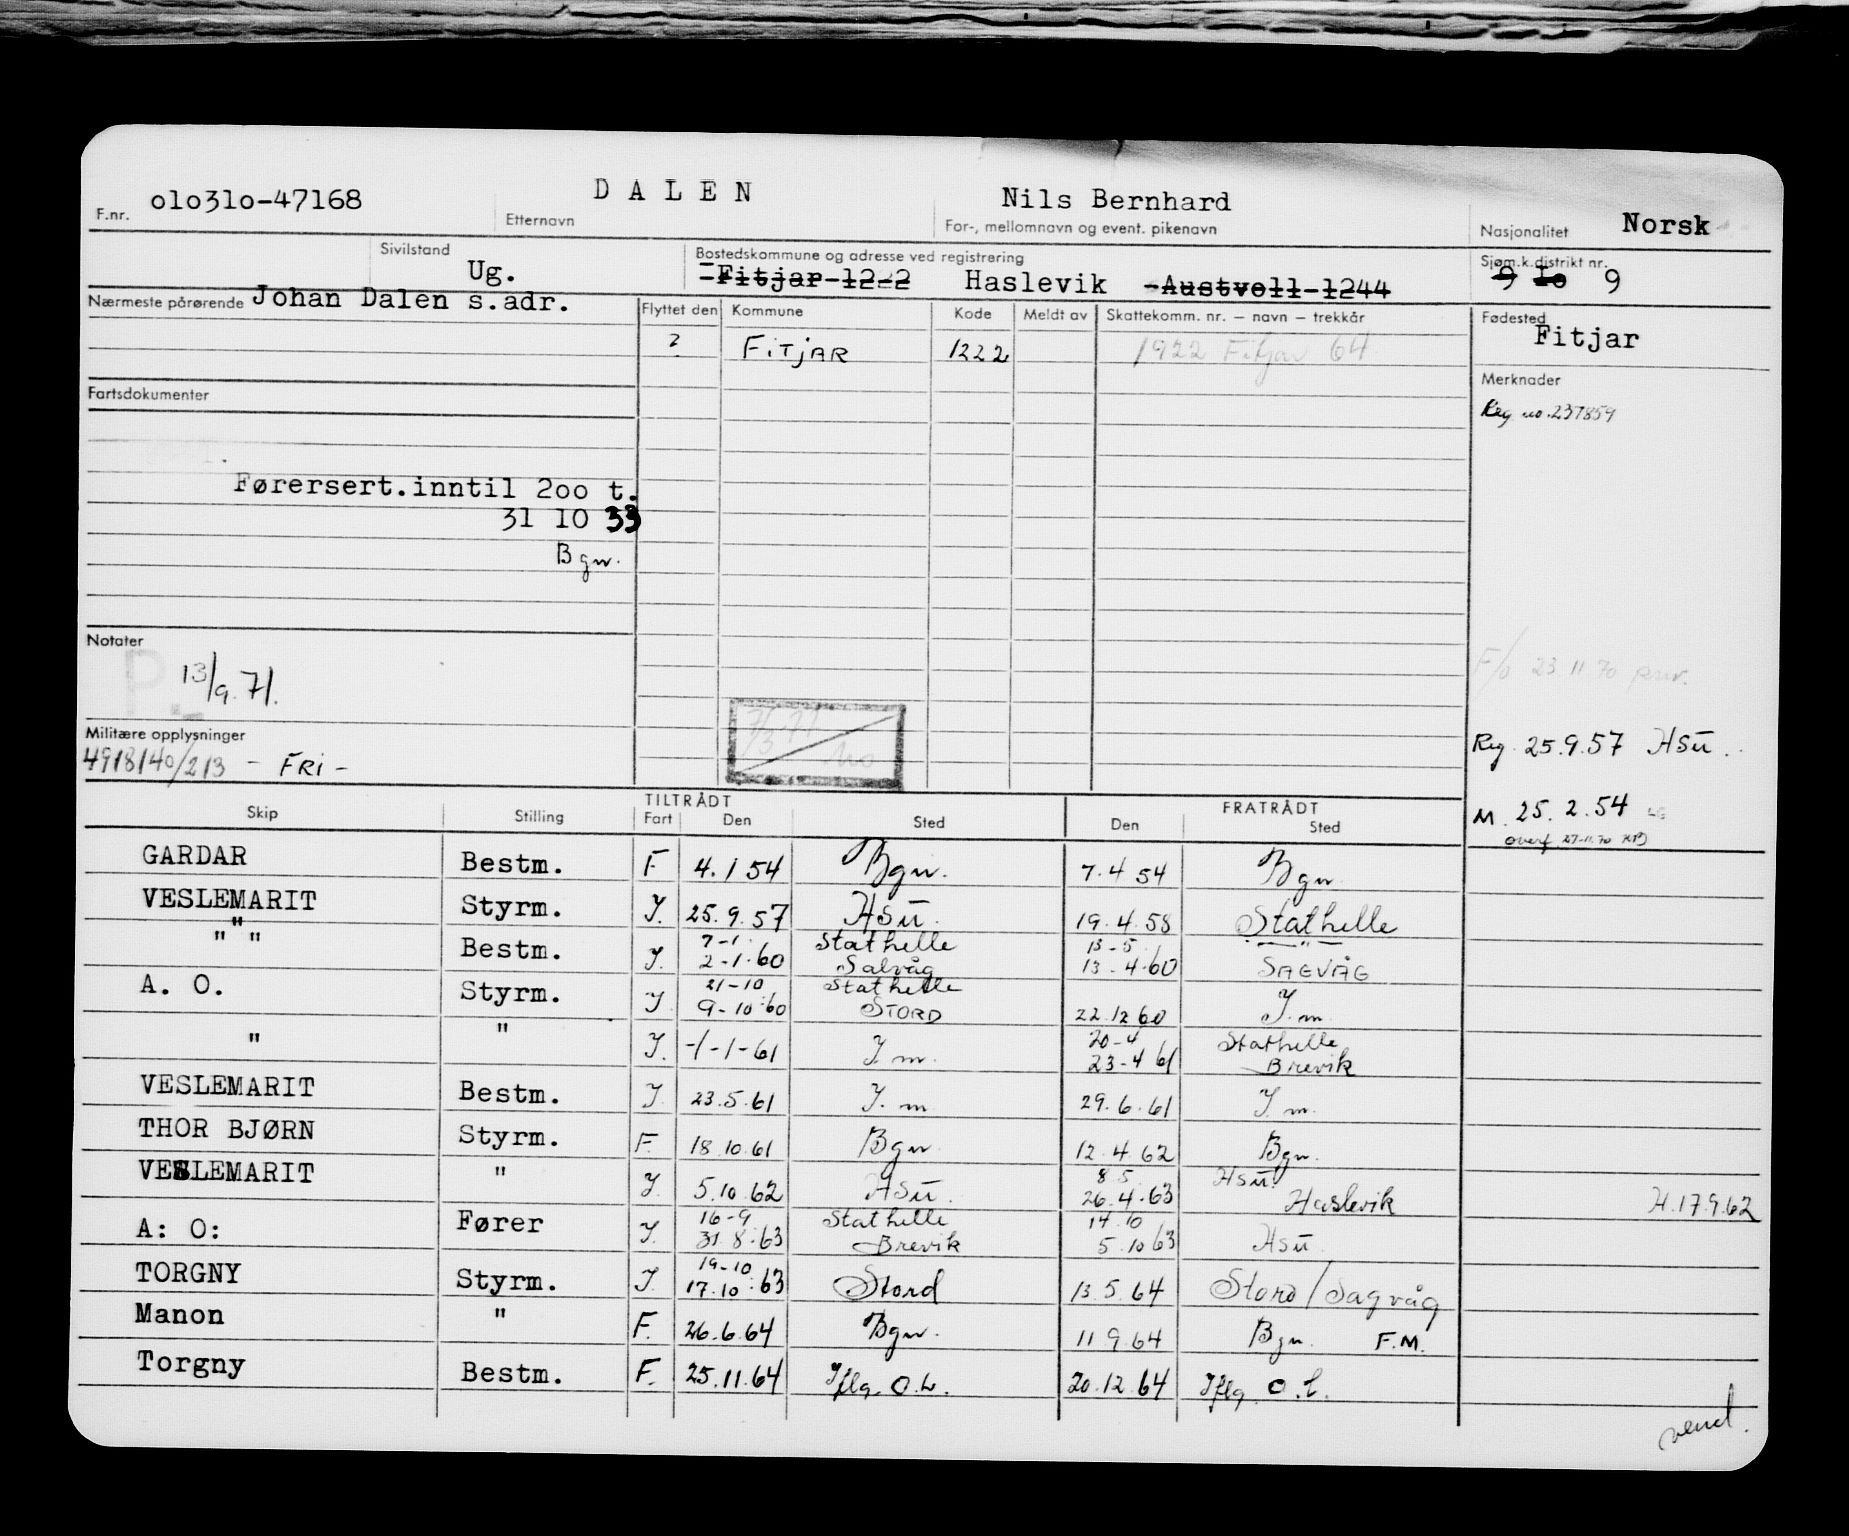 F.nr. olo3lo-47168
Etternavn DALEN
For-, mellomnavn og event. pikenavn Nils Bernhard
Nasjonalitet Norsk
Sivilstand Ug.
Bostedskommune og adresse ved registrering
-Fitjar-12-2 Haslevik -Austvoll-1244
Sjøm.k.distrikt nr. 9 lo 9
Nærmeste pårørende Johan Dalen s.adr.
Flyttet den Kommune Kode Meldt av Skattekomm. nr. – navn – trekkår
? FITJAR 1222 1922 Fitjar 64
Fødested Fitjar
Merknader
Reg no. 237859
Fartsdokumenter
Førersert.inntil 2oo t.
31 10 33
Bgn.
Notater
13/9.71.
Militære opplysninger
4918/40/213 - FRI -
7/3 71
F/o 23 11 70
Reg. 25.9.57 Hsu.
M. 25.2.54
overf 27-11.70
TILTRÅDT FRATRÅDT
Skip Stilling Fart Den Sted Den Sted
GARDAR Bestm. F 4.1 54 Bgn. 7.4 54 Bgn
VESLEMARIT Styrm. J. 25.9.57 Hsu. 19.4.58 Stathelle
" " " Bestm. J. 7-1. 2-1.60 Stathelle Salvåg 13-5. 13.-4.60 " SAGVÅG
A. O. Styrm. J 21-10 9-10.60 Stathelle STORD 22.12 60 J.m
" " J. -/-1-61 J m. 20-4 23-4 61 Stathelle Brevik
VESLEMARIT Bestm. J 23.5.61 J. m 29.6.61 J m.
THOR BJØRN Styrm. F. 18.10.61 Bgn 12.4.62 Bgn.
VESLEMARIT " J. 5.10.62 Hsu. 8.5 26.4.63 Hsu. Haslevik H.17.9.62
A: O: Fører J. 16-9 31.8.63 Stathelle Brevik 14.10 5.10 63 Hsu
TORGNY Styrm. J. 19-10 17.10.63 Stord 13.5.64 Stord/Sagvåg
Manon " F. 26.6.64 Bgn. 11 9.64 Bgn. F.M.
Torgny Bestm. F. 25.11.64 Iflg. O.L. 20.12.64 Iflg O.L.
vend.